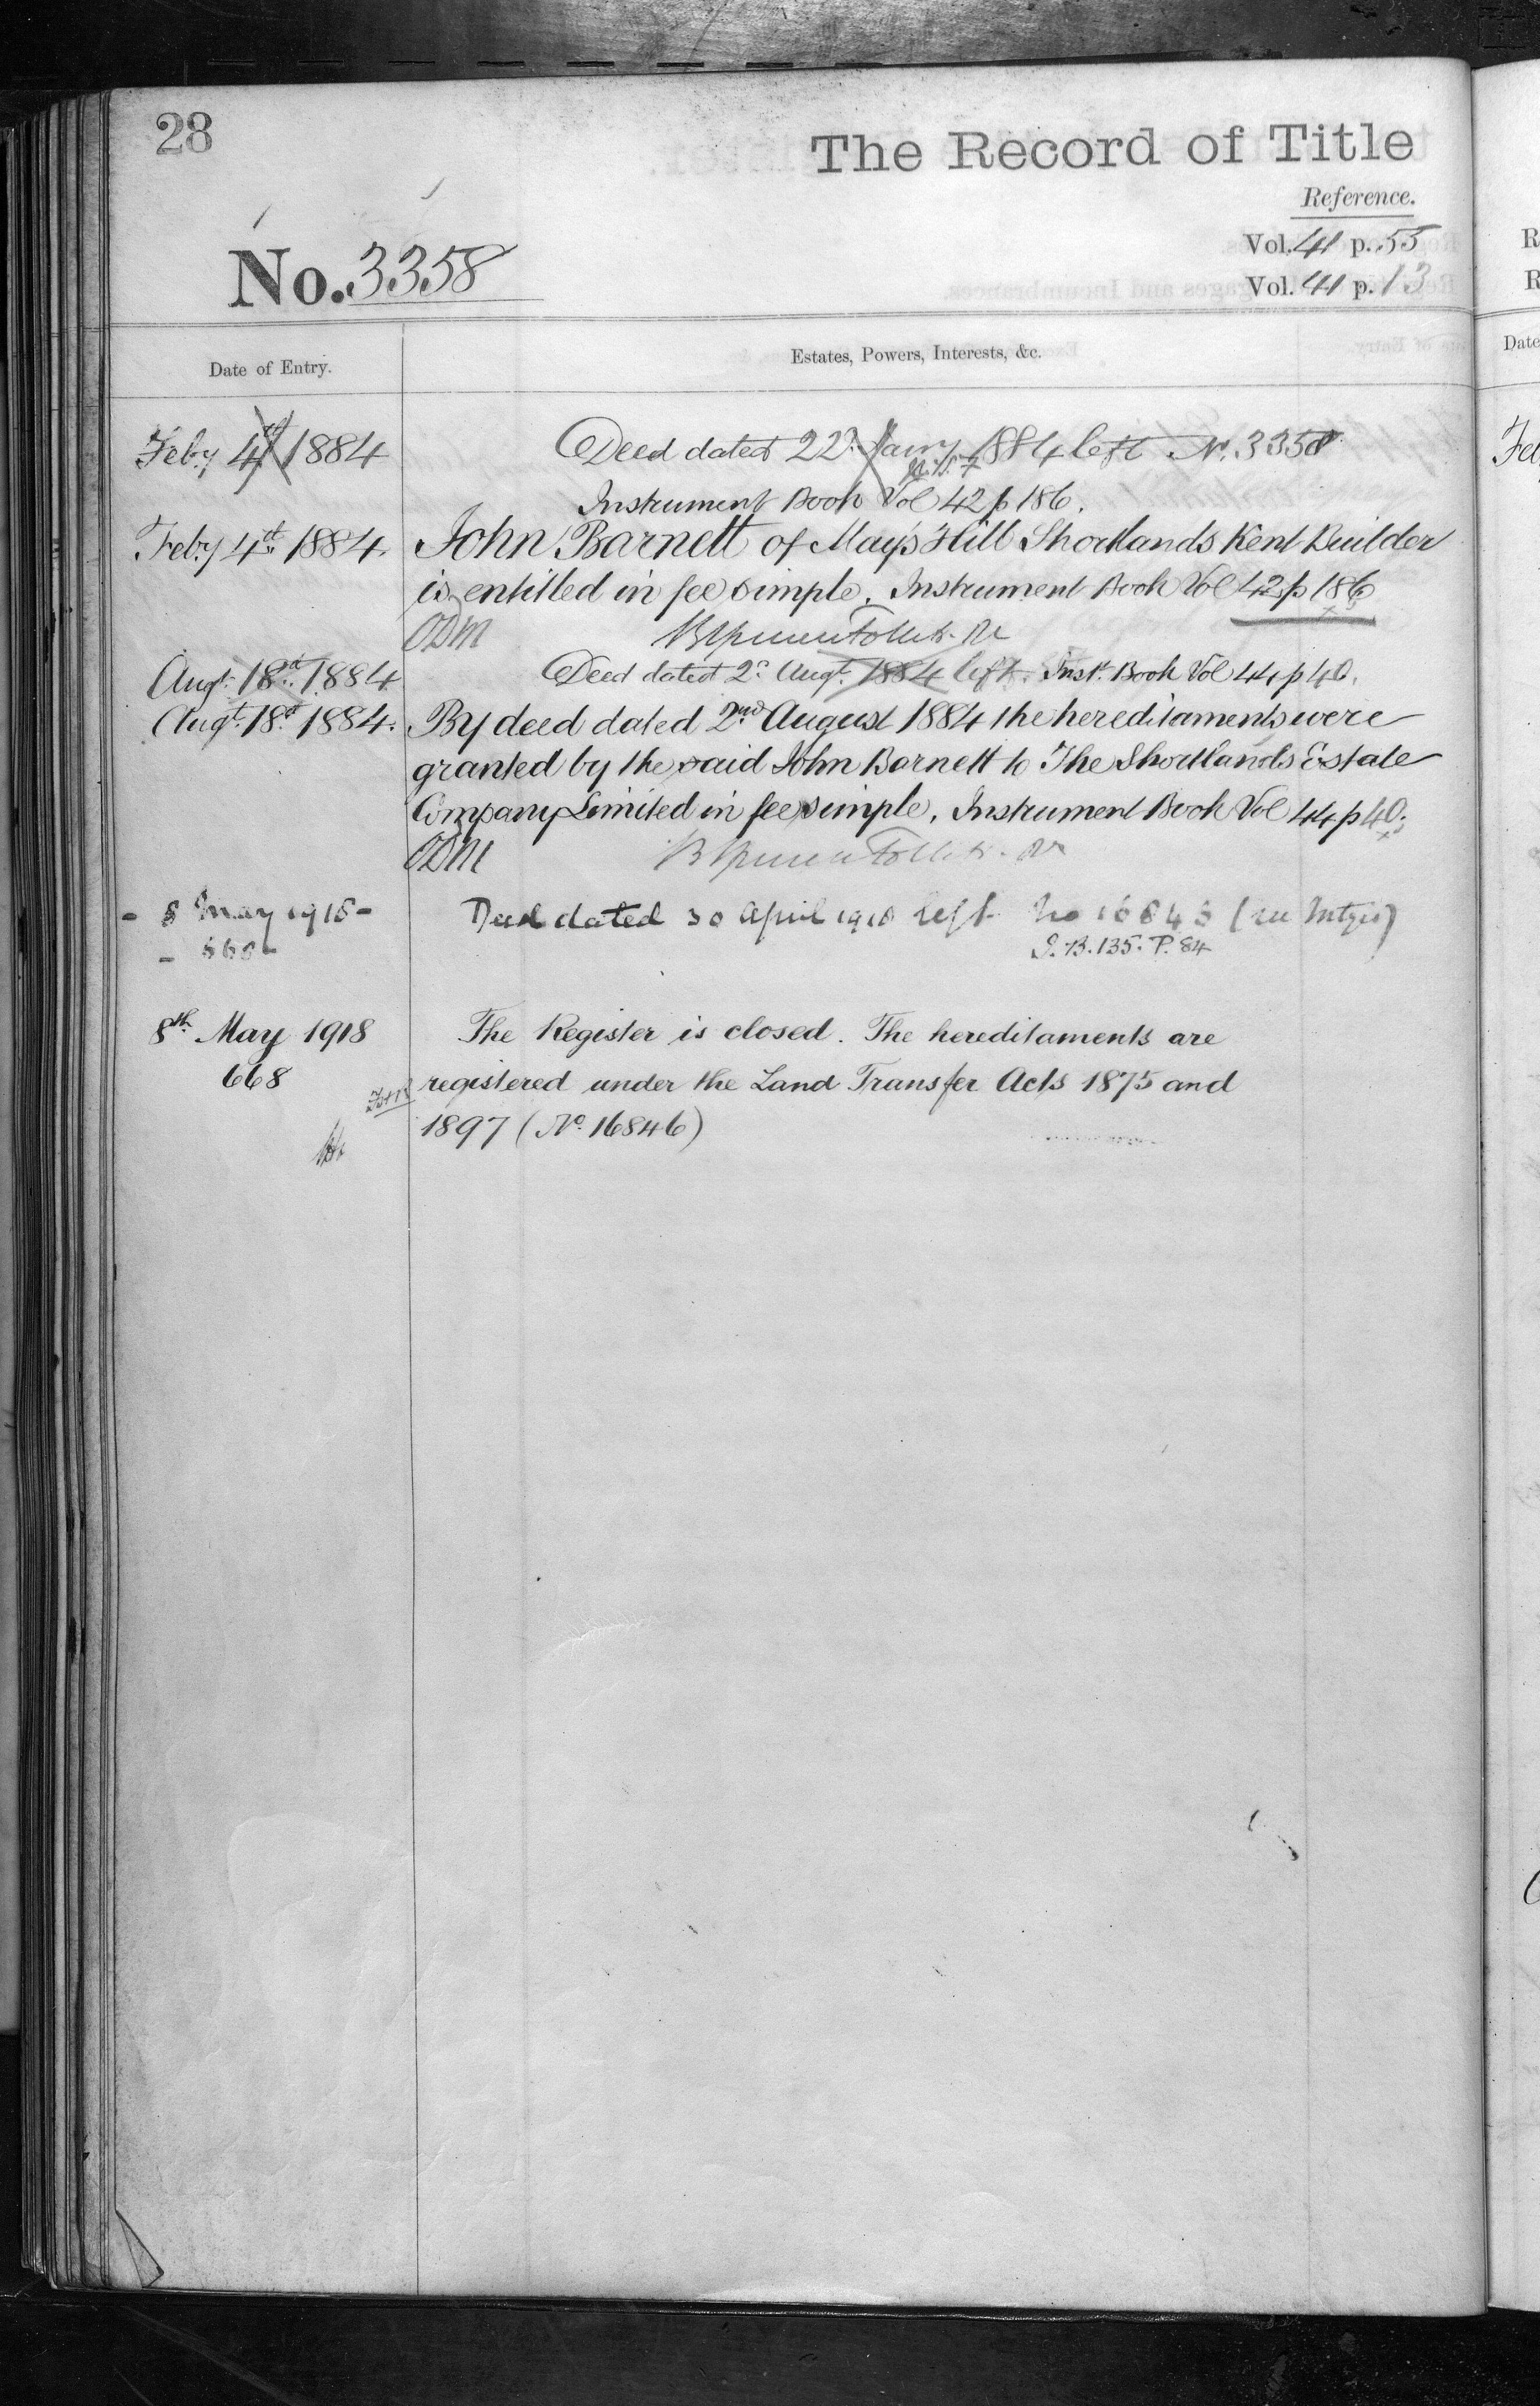 28
The Record of Title
Reference.
Vol. 41 p. 55
No. 3358
Vol. 41 p. 13
Date of Entry.
Estates, Powers, Interests, &c.
Feby 4th 1884
Deed dated 22d Jany 1884 left No. 3358
Instrument Book Vol 42 p 186.
Feby 4th 1884.
John Barnett of May's Hill Shortlands Kent Builder
is entitled in fee simple. Instrument Book Vol 42 p 186
ODM
Augt. 18th 1884
Deed dated 2d Augt. 1884 left. Inst. Book Vol 44 p 40.
Augt. 18th 1884.
By deed dated 2nd August 1884 the hereditaments were
granted by the said John Barnett to The Shortlands Estate
Company Limited in fee simple. Instrument Book Vol 44 p 40.
ODM
- 8 May 1918 -
Deed dated 30 April 1918 left No 16846 (see Mtges)
- 668 -
I.B. 135. P. 84
8th May 1918
The Register is closed. The hereditaments are
668
registered under the Land Transfer Acts 1875 and
1897 (No. 16846)
R
R
Date
Fe